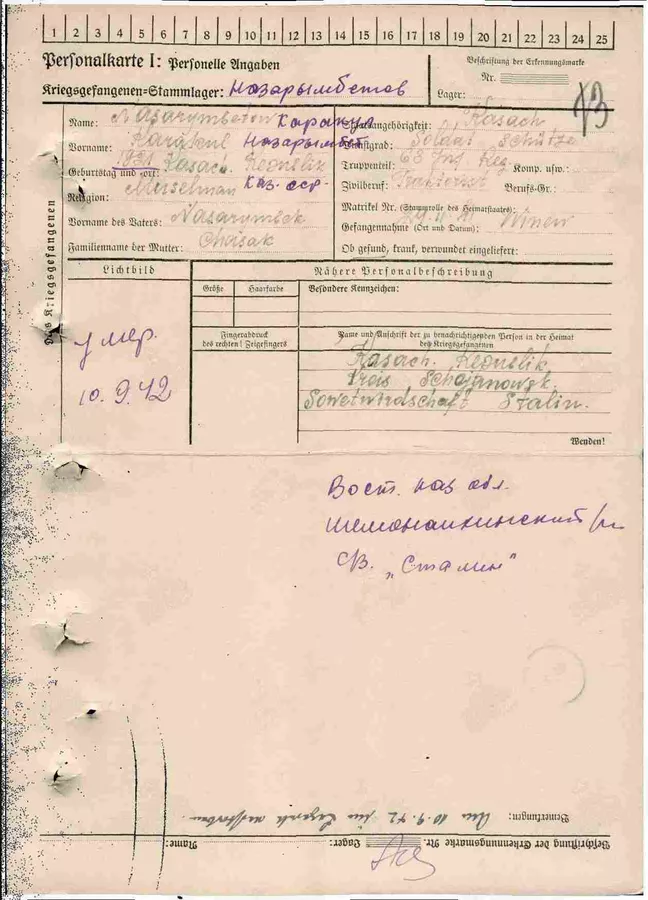 1 2 3 4 5 6 7 8 9 10 11 12 13 14 15 16 17 18 19 20 21 22 23 24 25
Personalkarte I: Personelle Angaben
Beschriftung der Erkennungsmarke
Nr.
Kriegsgefangenen-Stammlager: Назарымбетов
Lager:
Des Kriegsgefangenen
Name: Nasarymbetow Каракул
Staatsangehörigkeit: Kasach
Vorname: Karakul Назарымбет
Dienstgrad: Soldat Schütze
Geburtstag und -ort: Kasach. Republik
Truppenteil: 68 Inf. Reg. Komp. usw.:
Religion: Muselman Каз. сср.
Zivilberuf: Traktorist Berufs-Gr.:
Matrikel Nr. (Stammrolle des Heimatstaates):
Vorname des Vaters: Nasarymbek
Gefangennahme (Ort und Datum):
Familienname der Mutter: Chasak
Ob gesund, krank, verwundet eingeliefert:
Lichtbild
Nähere Personalbeschreibung
Größe Haarfarbe Besondere Kennzeichen:
Fingerabdruck
des rechten Zeigefingers
Name und Anschrift der zu benachrichtigenden Person in der Heimat
des Kriegsgefangenen
умер.
10.9.42
Kasach. Republik
Kreis Schojanowsk.
Sowetwirdschaft Stalin.
Wenden!
Вост. каз обл.
Шемонаихинский
св. „Сталин"
Bemerkungen: Am 10.9.42 im verstorben.
Beschriftung der Erkennungsmarke Nr. Lager: Name: